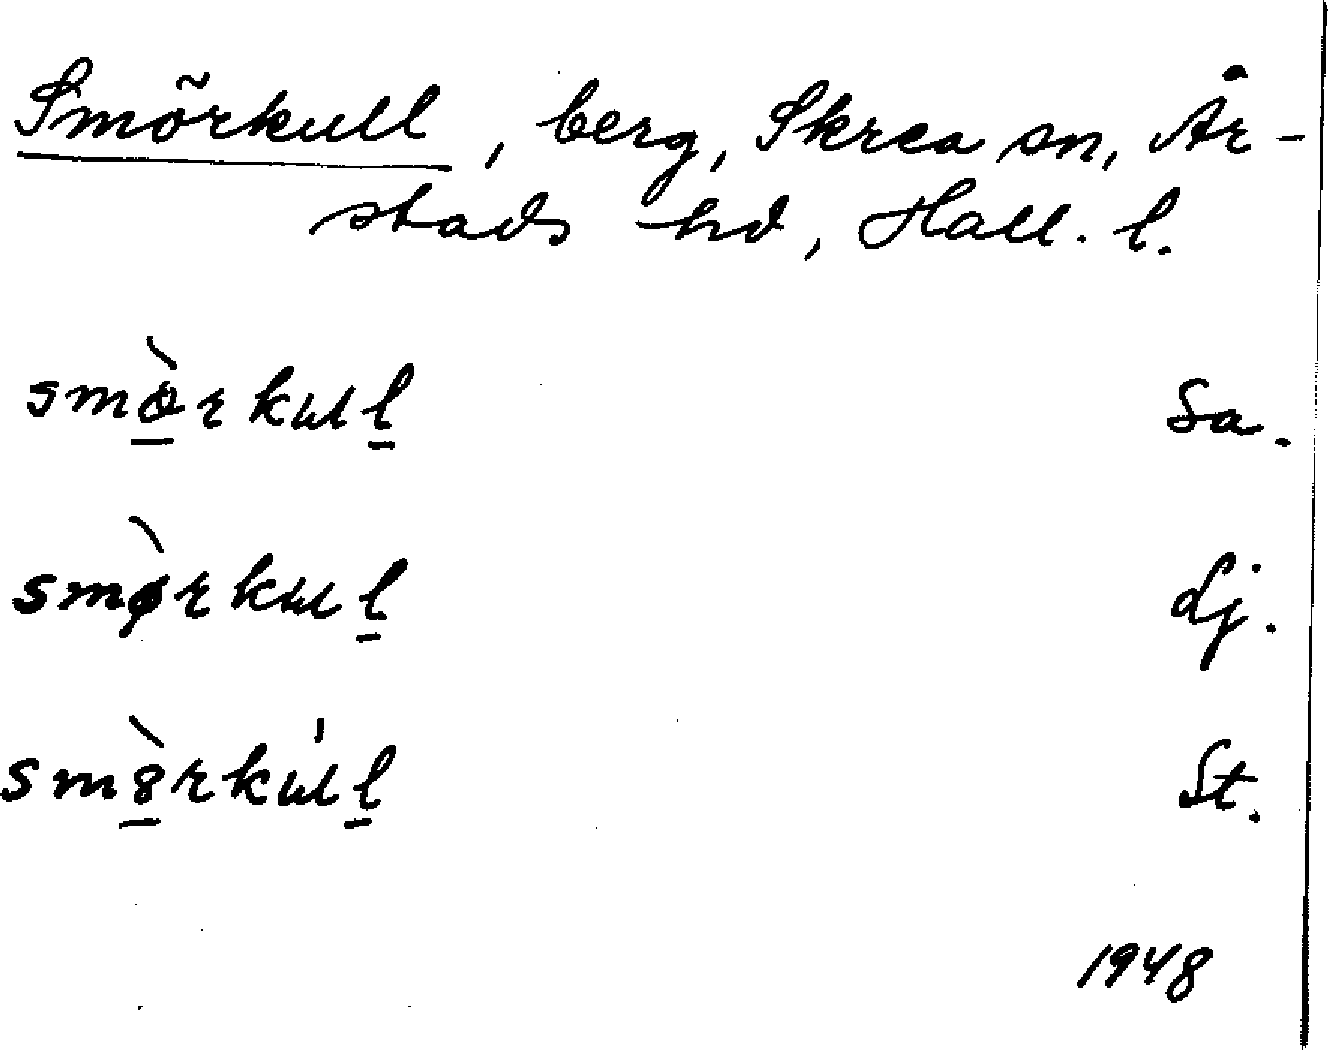 Smörkull, berg, Skrea sn, År-
stads hd, Hall. l.
smö̀rkɯll̠ Sa.
smø̀rkɯll̠ Lj.
sm8̠̀rkɯ́ll̠ St.
1948